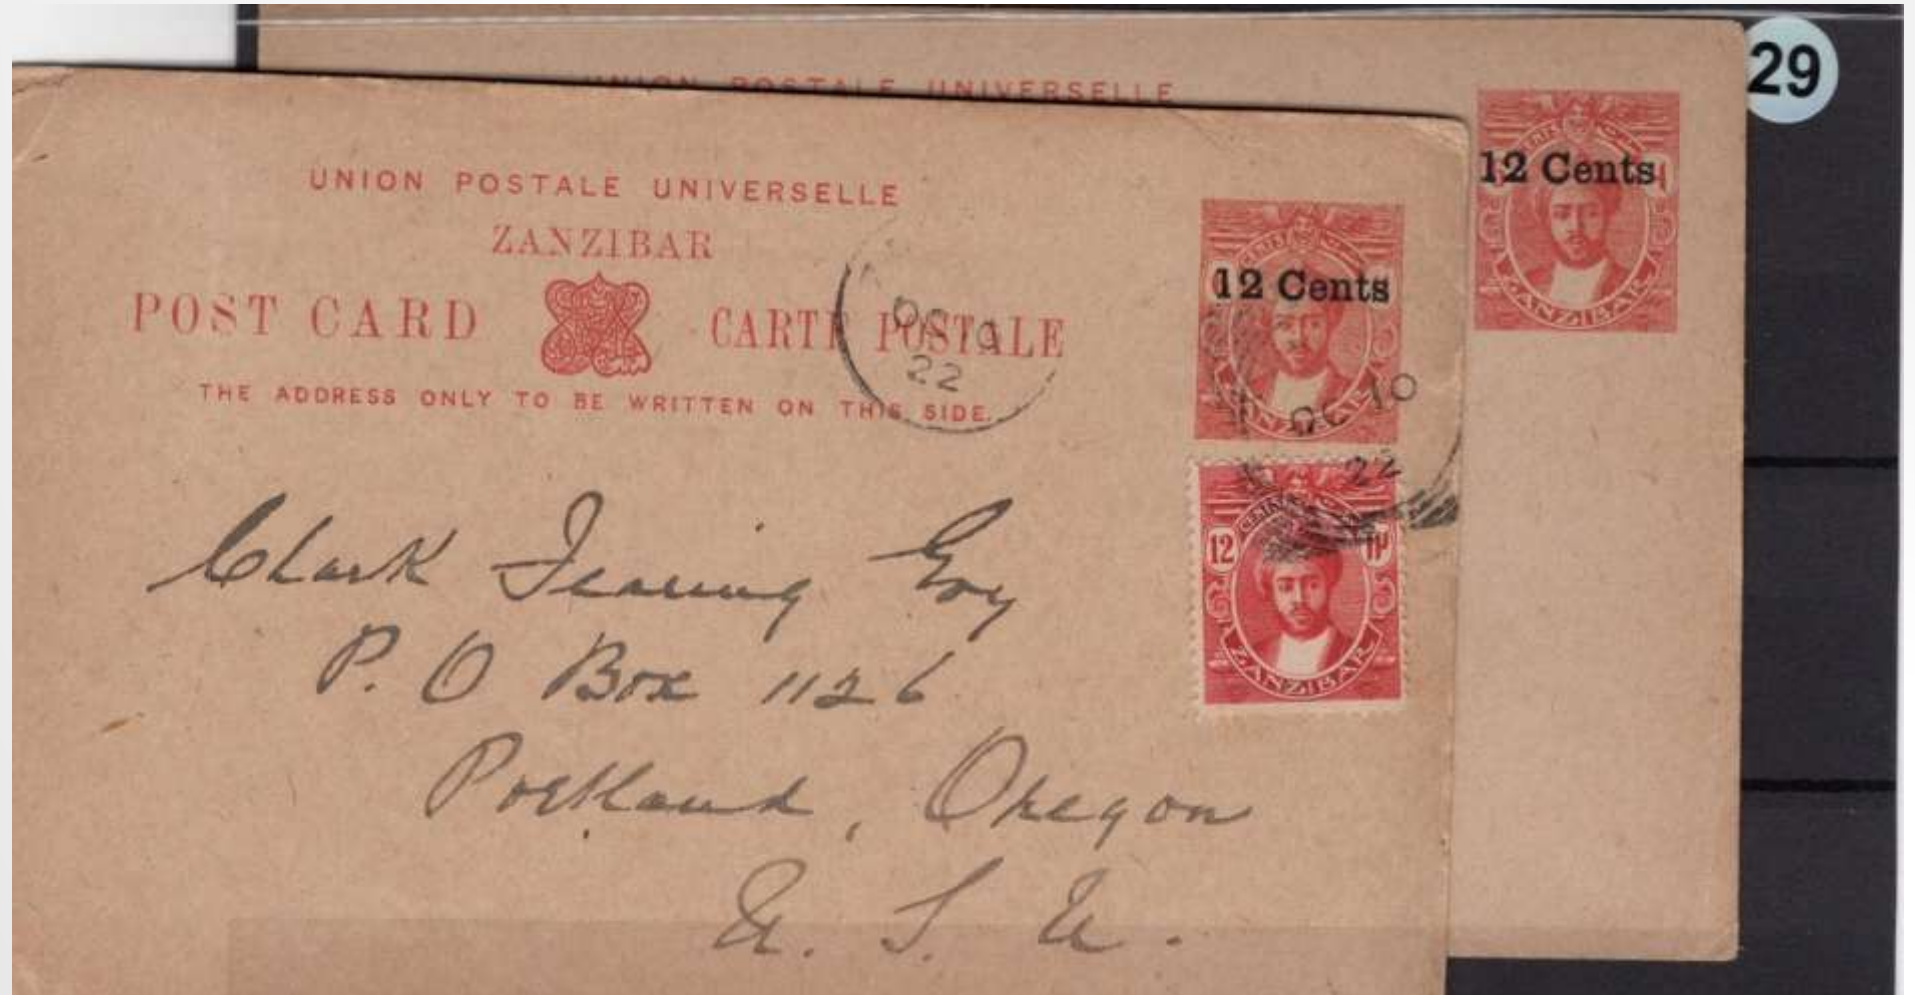 29
UNION POSTALE UNIVERSELLE
12 Cents
ZANZIBAR
UNION POSTALE UNIVERSELLE
ZANZIBAR
POST CARD CARTE POSTALE
THE ADDRESS ONLY TO BE WRITTEN ON THIS SIDE.
12 Cents
ZANZIBAR
OC
22
OC 10
22
12
CENTS
ZANZIBAR
Clark Esq
P. O Box 1126
Portland, Oregon
U. S. A.